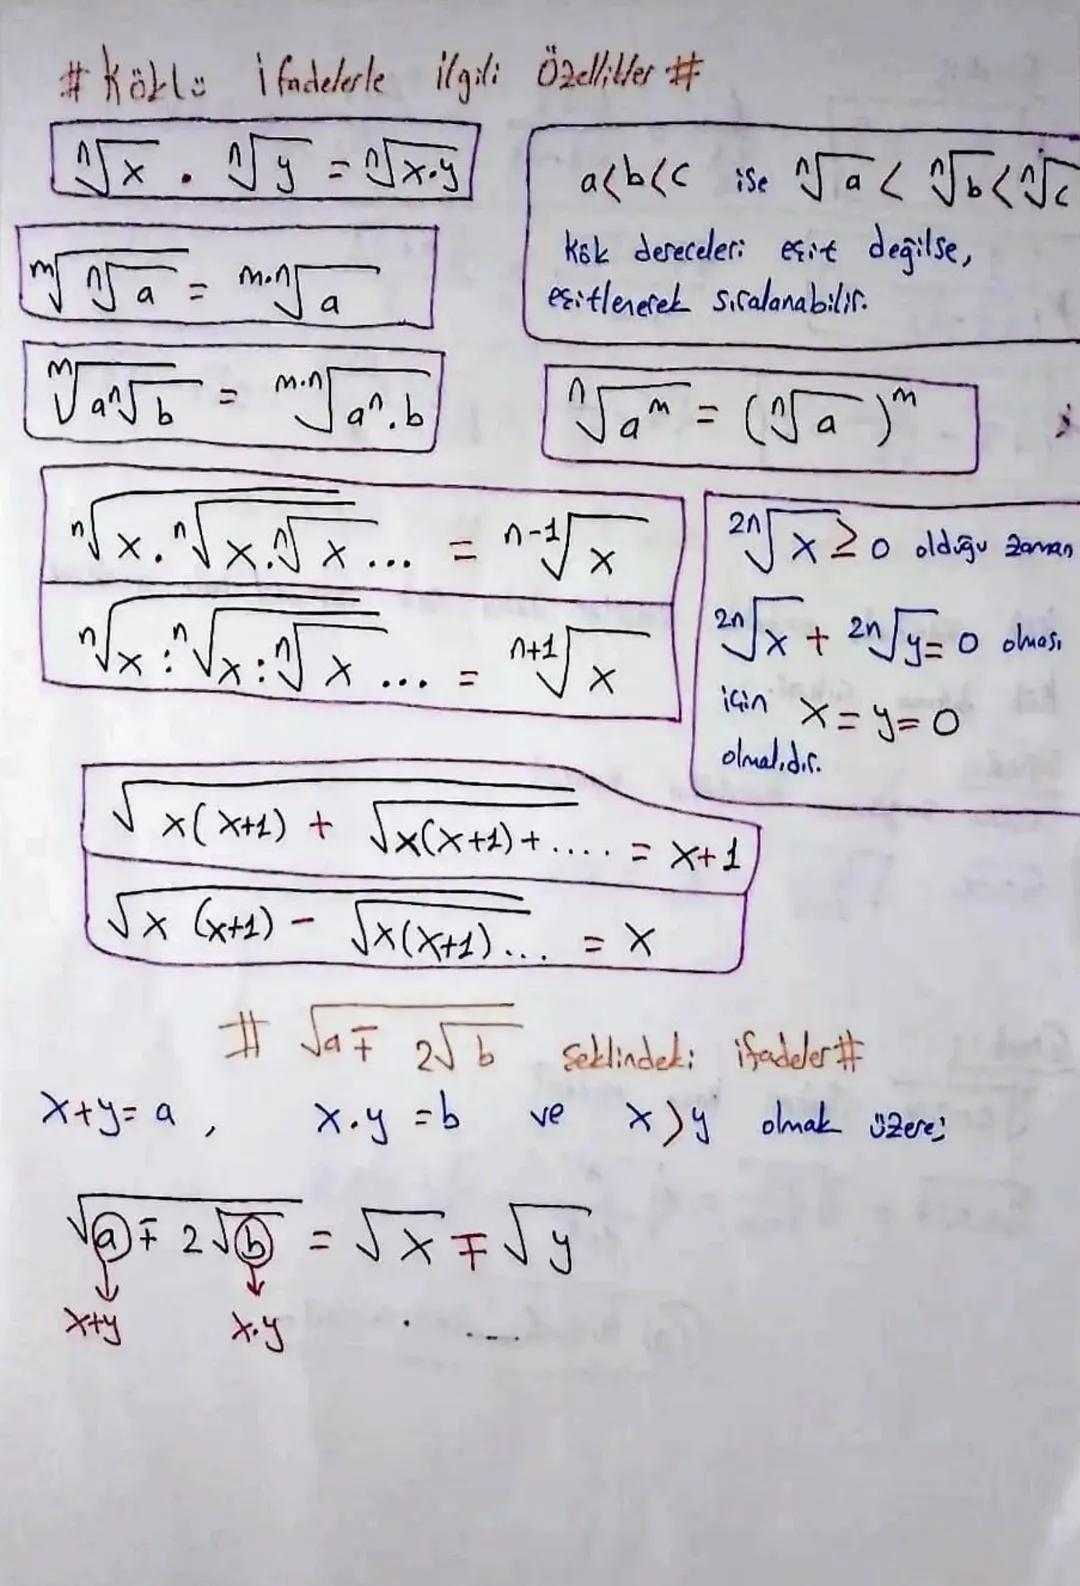 # Köklü İfadelerle ilgili Özellikler #
ⁿ√x . ⁿ√y = ⁿ√x.y
a<b<c ise ⁿ√a < ⁿ√b < ⁿ√c
kök dereceleri eşit değilse,
eşitlenerek sıralanabilir.
ᵐ√ⁿ√a = ᵐ·ⁿ√a
ᵐ√aⁿ√b = ᵐ·ⁿ√aⁿ.b
ⁿ√aᵐ = (ⁿ√a)ᵐ
ⁿ√x.ⁿ√x.ⁿ√x... = ⁿ⁻¹√x
ⁿ√x:ⁿ√x:ⁿ√x... = ⁿ⁺¹√x
²ⁿ√x ≥ 0 olduğu zaman
²ⁿ√x + ²ⁿ√y = 0 olması
için x = y = 0
olmalıdır.
√x(x+1) + √x(x+1)+.... = x+1
√x (x+1) - √x(x+1)... = x
# √a∓2√b şeklindeki ifadeler #
x+y = a , x.y = b ve x>y olmak üzere;
√a∓2√b = √x ∓ √y
x+y x.y